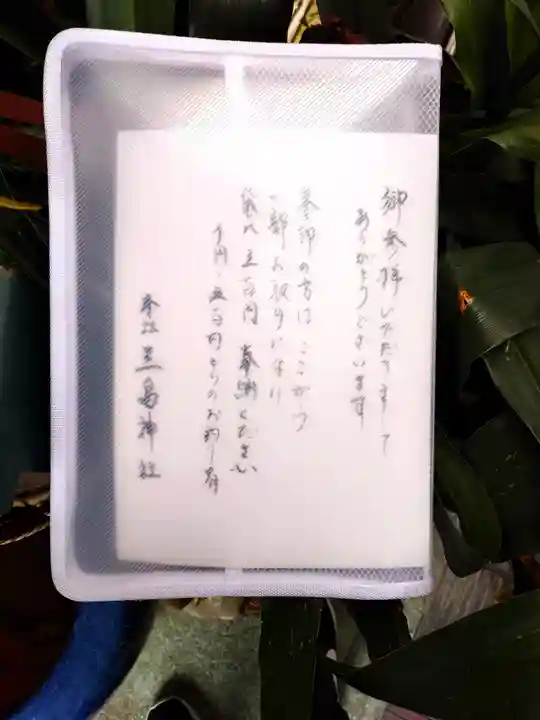 御参拝いただきまして
ありがとうございます
参印の方は ここから
一部お取りになり
袋代 五百円 奉納ください
千円・五百円よりのお釣り有
本江 黒島神社